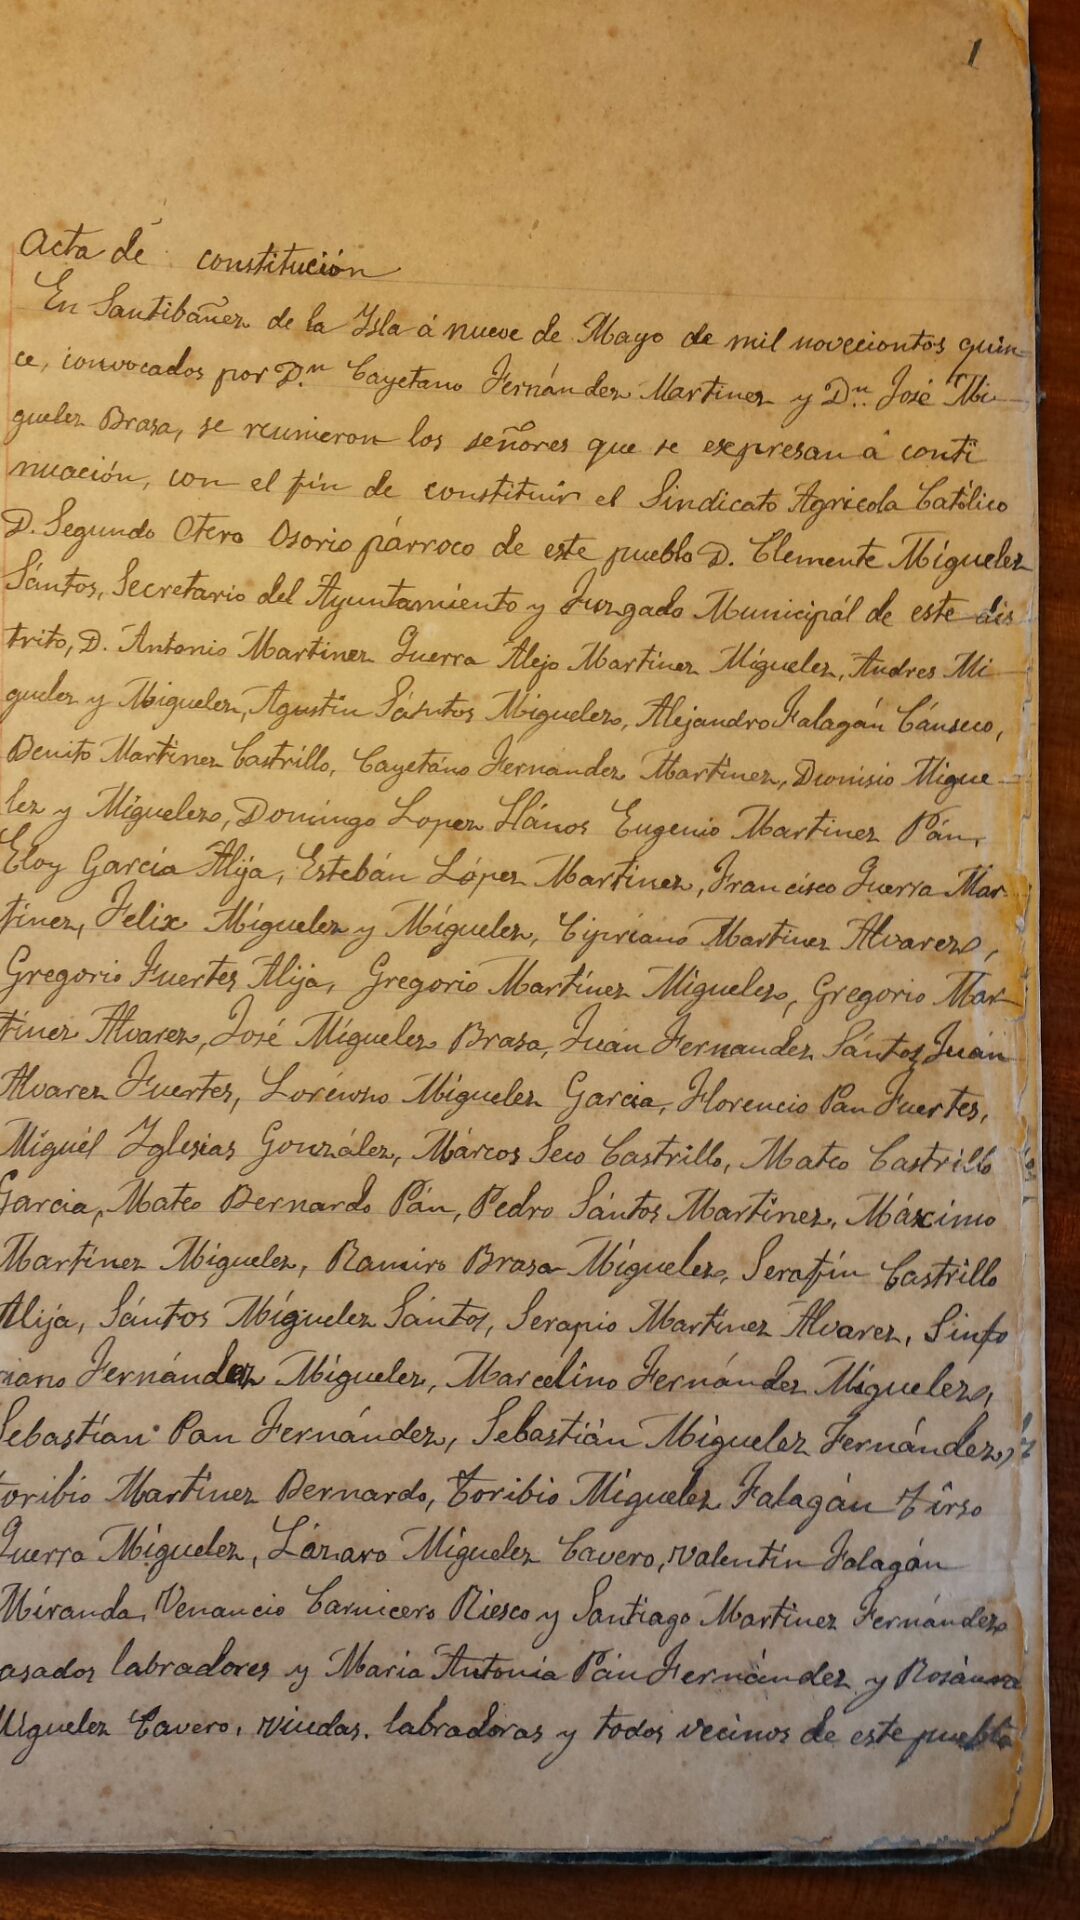 1
Acta de constitución
En Santibáñez de la Ysla á nueve de Mayo de mil noveciontos quin-
ce, convocados por D.ⁿ Cayetano Fernández Martinez y Dⁿ. José Mi-
guelez Brasa, se reunieron los señores que se expresan á conti
nuación, con el fin de constituir el Sindicato Agricola Católico
D. Segundo Otero Osorio párroco de este pueblo D. Clemente Miguelez
Sántos, Secretario del Ayuntamiento y Juzgado Municipál de este dis
trito, D. Antonio Martinez Guerra Alejo Martinez Miguelez, Andres Mi-
guelez y Miguelez, Agustin Sántos Miguelez, Alejandro Falagán Cánseco,
Benito Martinez Castrillo, Cayetáno Fernandez Martinez, Dionisio Migue-
lez y Miguelez, Domingo Lopez Llános Eugenio Martinez Pán,
Eloy García Alija, Estebán López Martinez, Francisco Guerra Mar-
tinez, Felix Míguelez y Míguelez, Cipriano Martinez Alvarez,
Gregorio Fuertes Alija, Gregorio Martínez Miguelez, Gregorio Mar-
tínez Alvarez, José Míguelez Brasa, Juán Fernandez Sántos Juán
Alvarez Fuertes, Lorénzo Miguelez Garcia, Florencio Pan Fuertes,
Miguél Yglesias González, Márcos Seco Castrillo, Mateo Castrillo
Garcia, Mateo Bernardo Pán, Pedro Sántos Martinez, Máximo
Martínez Miguelez, Ramiro Brasa Miguelez, Serafín Castrillo
Alija, Sántos Míguelez Sántos, Serapio Martínez Alvarez, Sinfo
riano Fernández Miguelez, Marcelino Fernández Miguelez,
Sebastían Pan Fernández, Sebastián Miguelez Fernández,
Toribio Martinez Bernardo, Toribio Miguelez Falagán Tírso
Guerra Miguelez, Lázaro Miguelez Cavero, Valentín Falagán
Míranda, Venancio Carnicero Riesco y Santiago Martinez Fernández
asados labradores y Maria Antonia Pán Fernández y Rosáura
Miguelez Cavero, viudas. labradoras y todos vecinos de este pueblo